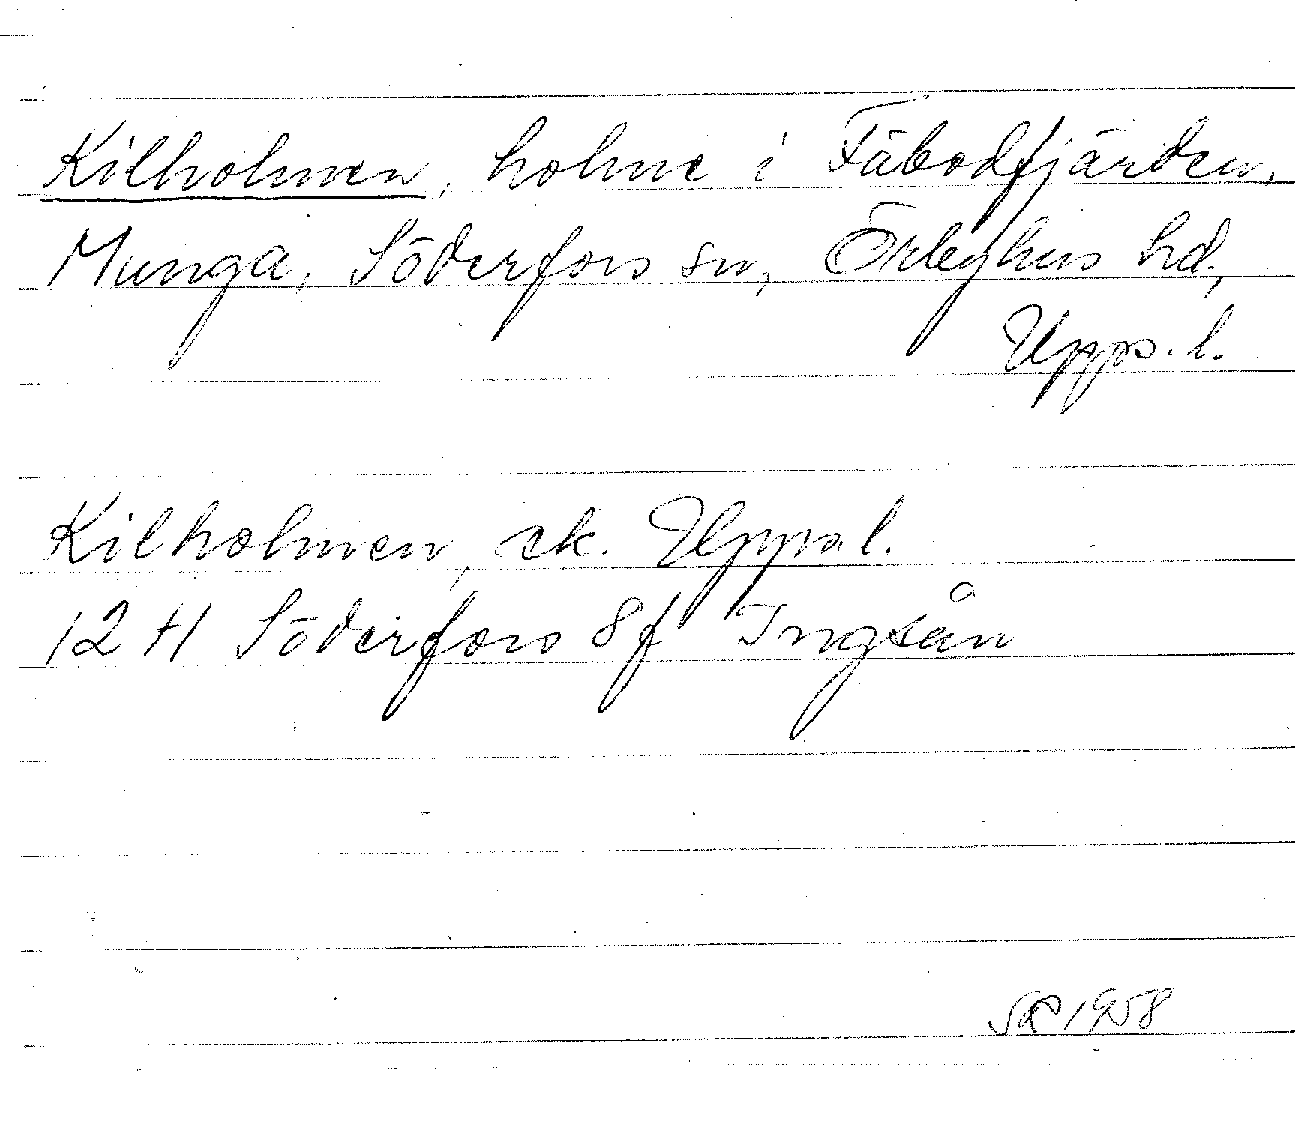 Kilholmen, holme i Fäbodfjärden,
Munga, Söderfors sn, Örbyhus hd,
Upps. l.
Kilholmen, ek. Upps. l.
12 H Söderfors 8f Ingsån
1958